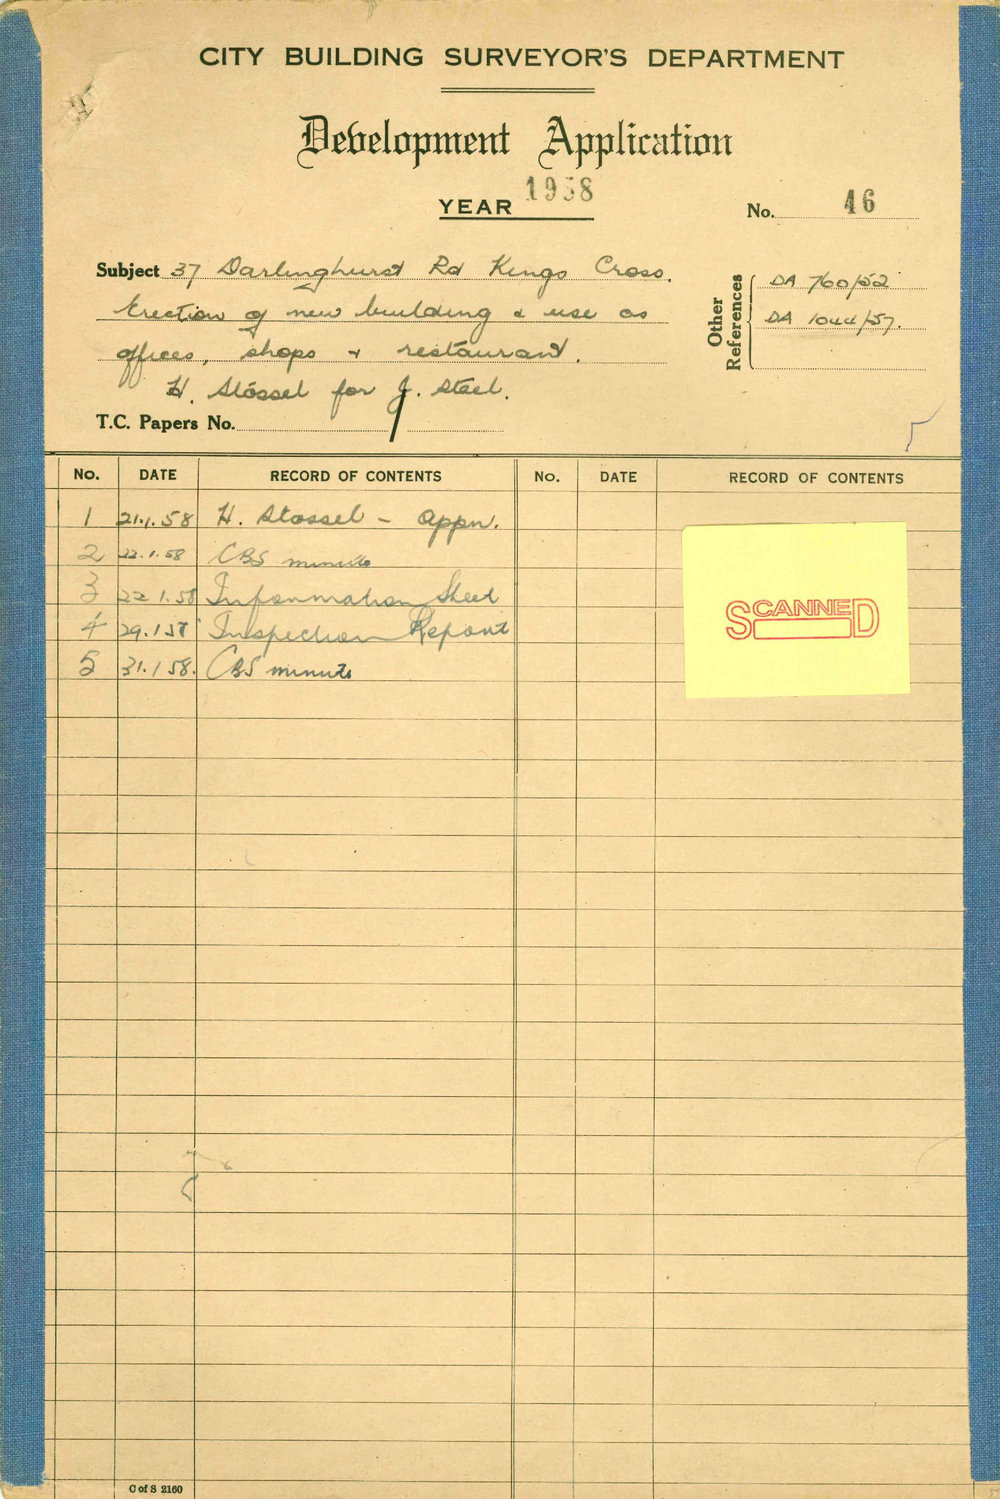 CITY BUILDING SURVEYOR'S DEPARTMENT
Development Application
YEAR 1958
No. 46
Subject 37 Darlinghurst Rd Kings Cross.
Erection of new building & use as
offices, shops & restaurant.
H. Stossel for J. Steel.
T.C. Papers No.
Other References
DA 760/52
DA 1044/57.
No. DATE RECORD OF CONTENTS No. DATE RECORD OF CONTENTS
1 21.1.58 H. Stossel - Appn.
2 22.1.58 CBS minute
3 22.1.58 Information Sheet
4 29.1.58 Inspection Report
5 31.1.58. CBS minute
SCANNED
C of S 2160